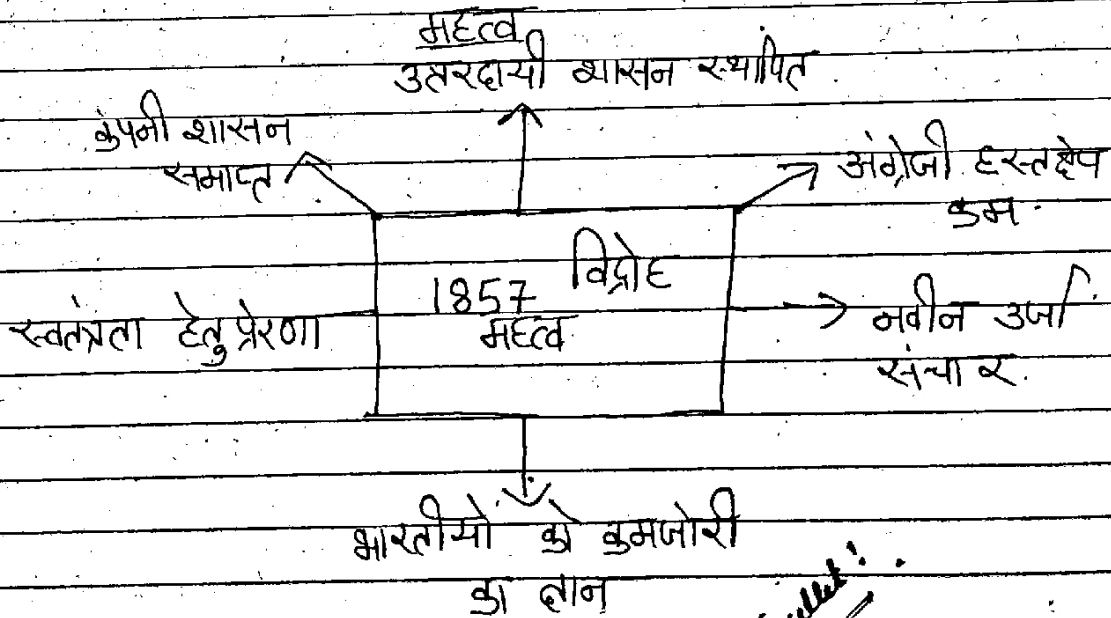 महत्व
उत्तरदायी शासन स्थापित
कंपनी शासन
समाप्त
अंग्रेजी हस्तक्षेप
कम.
विद्रोह
1857
महत्व
स्वतंत्रता हेतु प्रेरणा
नवीन उर्जा
संचार.
भारतीयो को कमजोरी
का ज्ञान